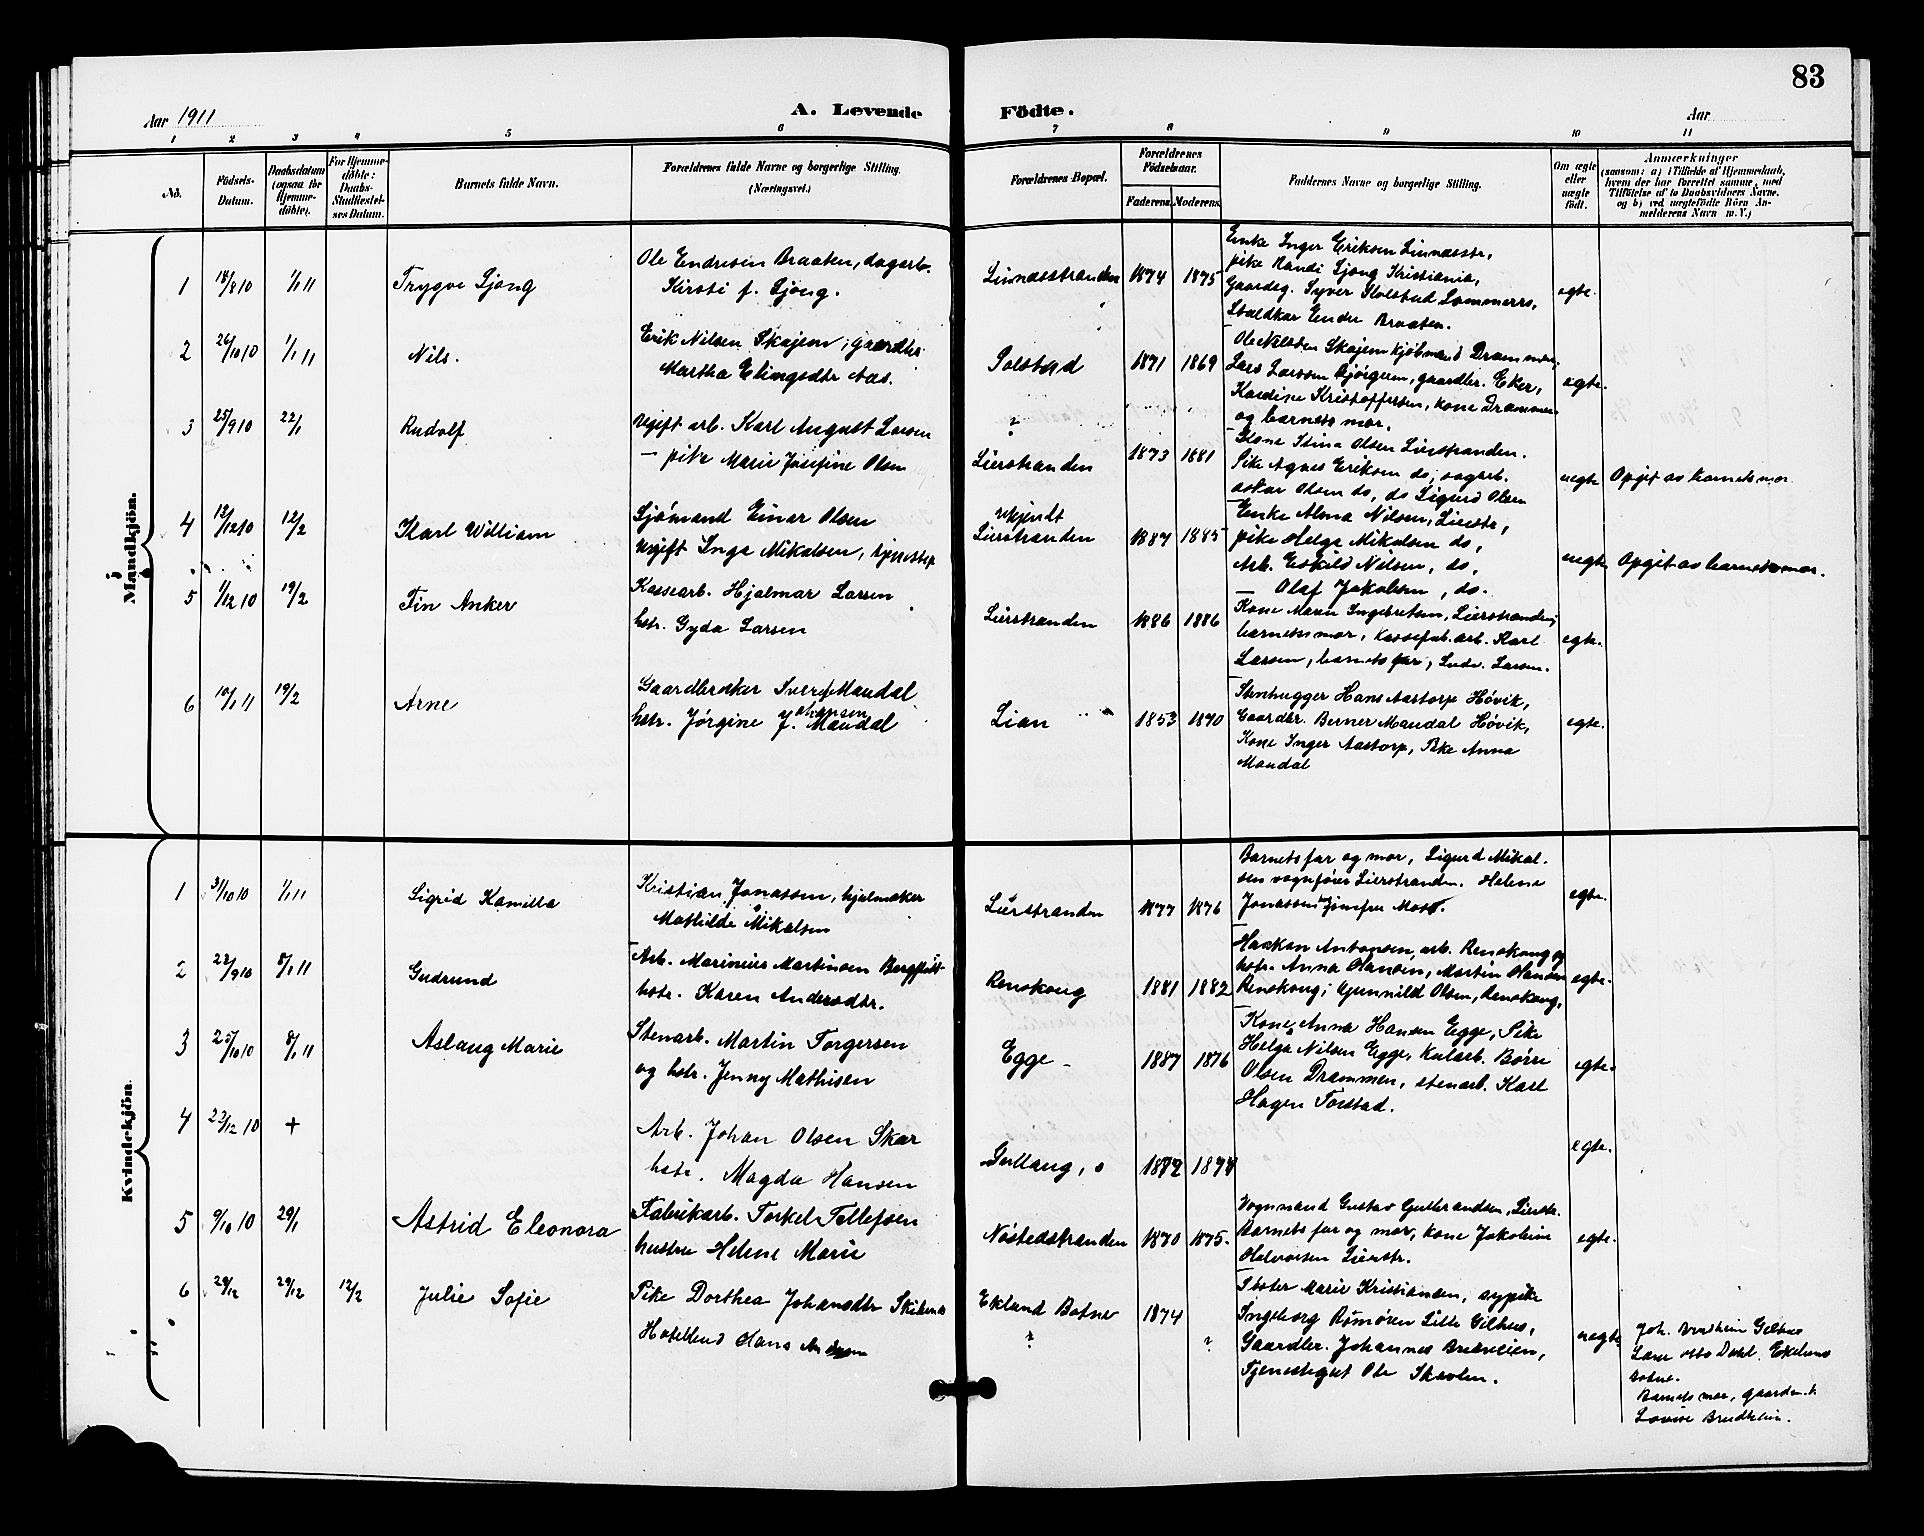 83
Aar 1911
A. Levende Födte.
Aar
1 2 3 4 5 6 7 8 9 10 11
No.
Födsels-Datum.
Daabsdatum (ogsaa for Hjemme-döbte).
For Hjemme-döbte: Daabs-Stadfæstel-ses Datum.
Barnets fulde Navn.
Forældrenes fulde Navne og borgerlige Stilling. (Næringsvei.)
Forældrenes Bopæl.
Forældrenes Födselsaar.
Faderens. Moderens.
Faddernes Navne og borgerlige Stilling.
Om ægte eller uægte födt.
Anmærkninger
(saasom: a) i Tilfælde af Hjemmedaab, hvem der har forrettet samme, med Tilföielse af to Daabsvidners Navne, og b) ved uægtefödte Börn An-melderens Navn m. V.)
Mandkjön.
1 18/8 10 1/1 11 Trygve Ljøng
Ole Endresen Braaten, dagarb.
Kirsti f. Ljøng.
Linnesstranden 1874 1875
Enke Inger Eriksen Linnesstr,
pike Randi Ljøng Kristiania,
Gaardeg. Syver Solstad Lommerrs,
Staldkar Ender Braaten.
egte.
2 26/10 10 1/1 11 Nils.
Erik Nilsen Skajem, gaardbr.
Martha Elingsdtr Aas.
Solstad 1871 1869
Ole Nilsen Skajem kjøbmand Drammen,
Lars Larssen Bjørgum, gaardbr. Eker,
Kardine Kristoffersen, kone Drammen
og barnets mor.
egte.
3 25/9 10 22/1 Rudolf
Ugift arb. Karl August Larsen
— pike Marie Josefine Olsen
?
Lierstranden 1873 1881
Kone Stina Olsen Lierstranden.
Pike Agnes Eriksen do, sagarb.
Oskar Olsen do, do Sigurd Olsen
uegte Opgit av barnets mor
4 12/12 10 12/2 Karl William
Sjømand Einar Olsen
Ugift Inga Mikalsen, tjenestep
Ukjendt
Lierstranden 1887 1885
Enke Alma Nilsen, Lierstr,
pike Helga Mikalsen do,
Arb. Eskild Nilsen, do,
Olaf Jakobsen, do.
uegte Opgit av barnets mor.
5 1/12 10 19/2 Fin Anker
Kassearb. Hjalmar Larsen
hstr. Gyda Larsen
Lierstranden 1886 1886
Kone Maren Ingebretsen, Lierstranden,
barnets mor, Kassefab.arb. Karl
Larsen, barnets far, Ludv. Larsen.
egte.
6 10/1 11 19/2 Arne
Gaardbruker Sverre Maudal
hstr. Jørgine Johansen Maudal
Lian 1853 1870
Stenhugger Hans Aastorp Høvik,
Gaardbr. Berner Maudal Høvik,
Kone Inger Aastorp, Pike Anna
Maudal
egte.
Kvindekjön.
1 31/10 10 1/1 11 Sigrid Kamilla
Kristian Jonassen, hjulmaker
Mathilde Mikalsen
Lierstranden 1877 1876
Barnets far og mor, Sigurd Mikal-
sen vognfører Lierstranden. Helene
Jonassen Jomfru Moss.
egte.
2 22/9 10 8/1 11 Gudrund
Arb. Marinius Martinsen Bergflødt
hstr. Karen Andersdtr.
Renskoug 1881 1882
Haakon Antonsen, arb. Renskoug og
hstr. Anna Hansen, Martin Hansen
Renskoug, Gunnild Olsen, Renskoug,
egte.
3 25/10 10 8/1 11 Aslaug Marie
Stenarb. Martin Torgersen
og hstr. Jenny Mathisen
Egge 1887 1876
Kone Anna Hansen Egge, Pike
Helga Nilsen Egge, Kularb. Børre
Olsen Drammen, stenarb. Karl
Hagen Torstad.
egte.
4 23/12 10 +
Arb. Johan Olsen Skar
hstr. Magda Hansen
Gullaug, 1872 1874
egte.
5 9/10 10 29/1 Astrid Eleonora
Fabrikarb. Torkel Tellefsen
hustru Helene Marie
Nøstedstranden 1870 1875.
Vognmand Gustav Gulbrandsen, Lierstr.
Barnets far og mor, kone Jakobine
Halvorsen Lierstr.
egte.
6 29/12 29/12 12/2 Julie Sofie
Pike Dorthea Johansdtr
Hotelleud Hans Andersen
Eklund Botne 1874
? ?
Marie Kristiansen, sypike
Ingeborg Rømøren Lille Gilhus,
Gaardbr. Johannes Brusveien,
Tjenestegut Ole Skavlen.
uegte
Joh. Brudheim Gilhus
Lærer Otto Dahl. Ekelund
Botne.
Barnets mor, gaardm.k
Lovise Brudheim.